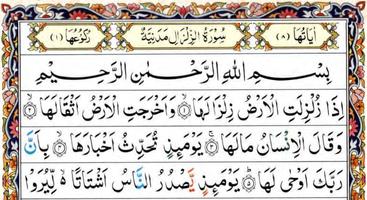 اٰيَاتُهَا (٨) سُوْرَةُ الزِّلْزَالِ مَدَنِيَّةٌ رُكُوْعُهَا (١)
بِسْمِ اللّٰهِ الرَّحْمٰنِ الرَّحِيْمِ
اِذَا زُلْزِلَتِ الْاَرْضُ زِلْزَالَهَا ۙ١ وَاَخْرَجَتِ الْاَرْضُ اَثْقَالَهَا ۙ٢
وَقَالَ الْاِنْسَانُ مَالَهَا ۚ٣ يَوْمَئِذٍ تُحَدِّثُ اَخْبَارَهَا ۙ٤ بِاَنَّ
رَبَّكَ اَوْحٰى لَهَا ؕ٥ يَوْمَئِذٍ يَّصْدُرُ النَّاسُ اَشْتَاتًا ۙ۬ لِّيُرَوْا